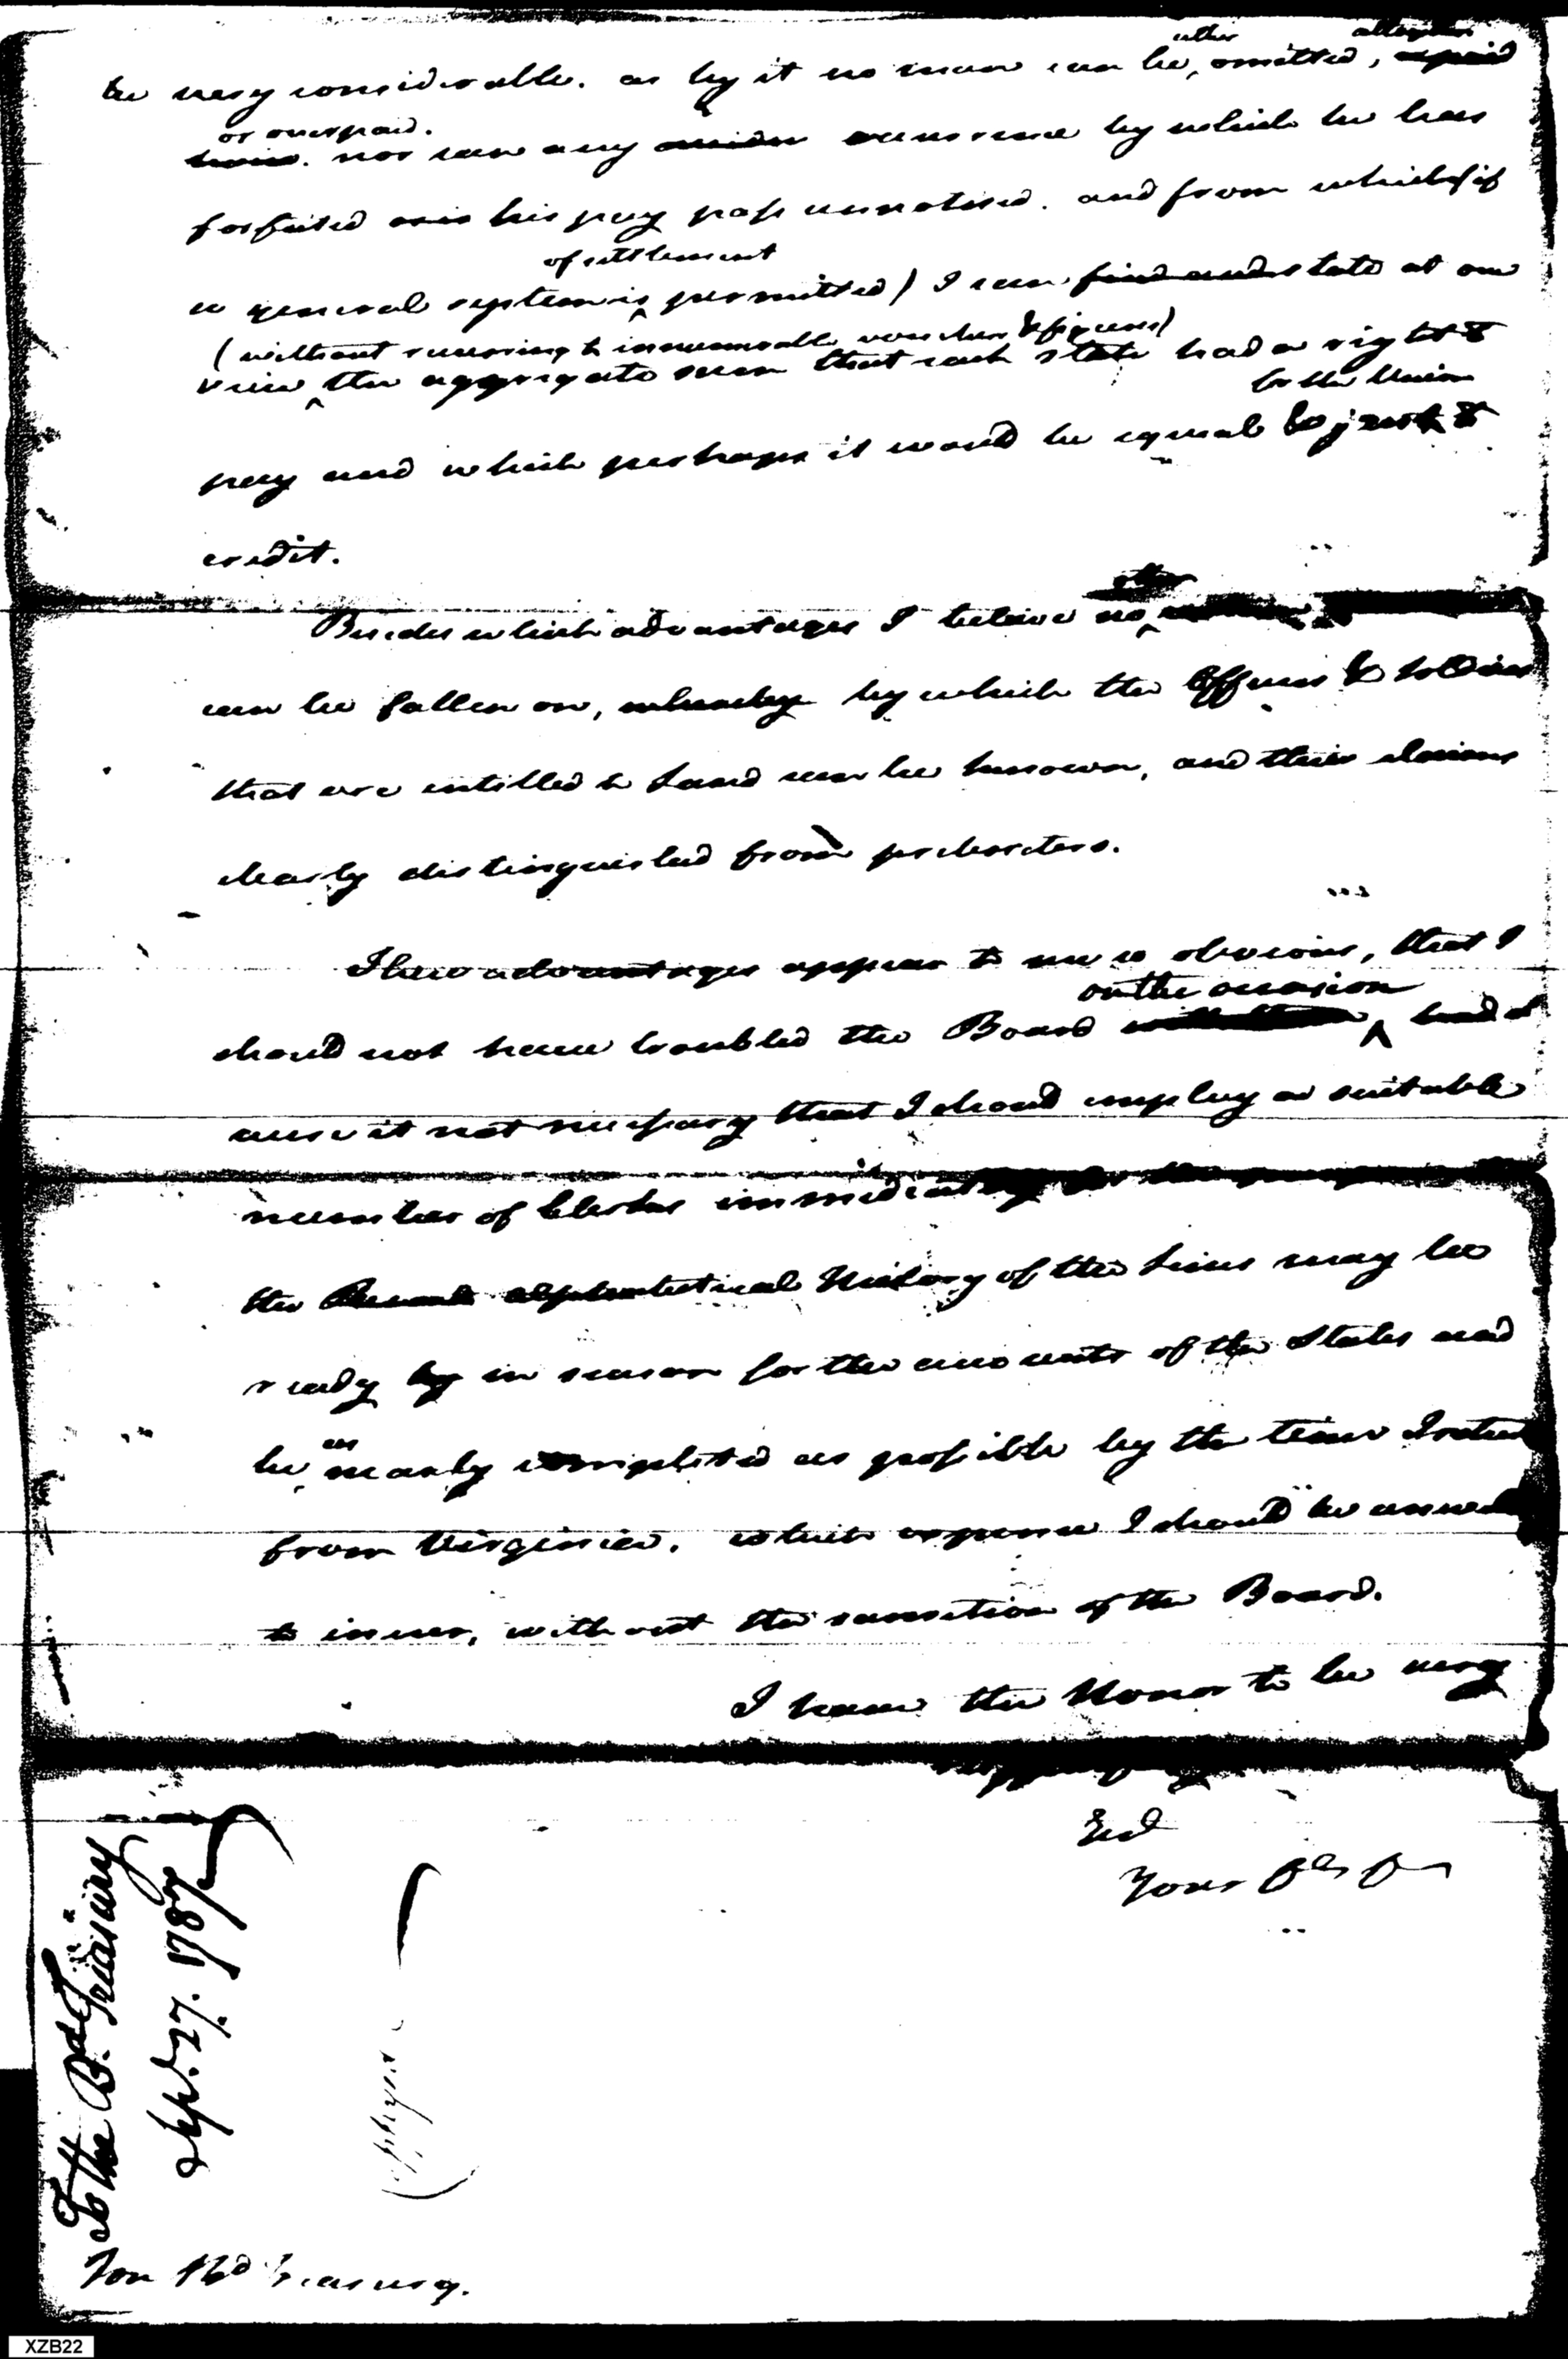 be very considerable. as by it no man can be, omitted,
either
or overpaid.
nor can any occurrence by which he has
forfeited his pay pass unnoticed. and from which (if
of settlement
a general system is permitted) I can state at one
(without recurring to innumerable vouchers & figures)
view the aggregate sum that each state had a right to
for the Union
pay and which perhaps it would be equal & just to
credit.
Besides which advantages I believe no
can be fallen on, whereby by which the Officers & soldiers
that are intitled to Land can be known, and their claims
clearly distinguished from
These advantages appear to me so obvious, that I
on the occasion
should not have troubled the Board had
it not necessary that I should employ a suitable
number of Clerks immediately for the
the alphabetical History of the Lines may be
ready by in season for the accounts of the States and
as
be nearly completed as possible by the time I return
from Virginia. which expence I should be
to incur, without the sanction of the Board.
I have the Honor to be very
Yours
To the Bd. Treasury
27. 1787
Hon Bd Treasury.
XZB22